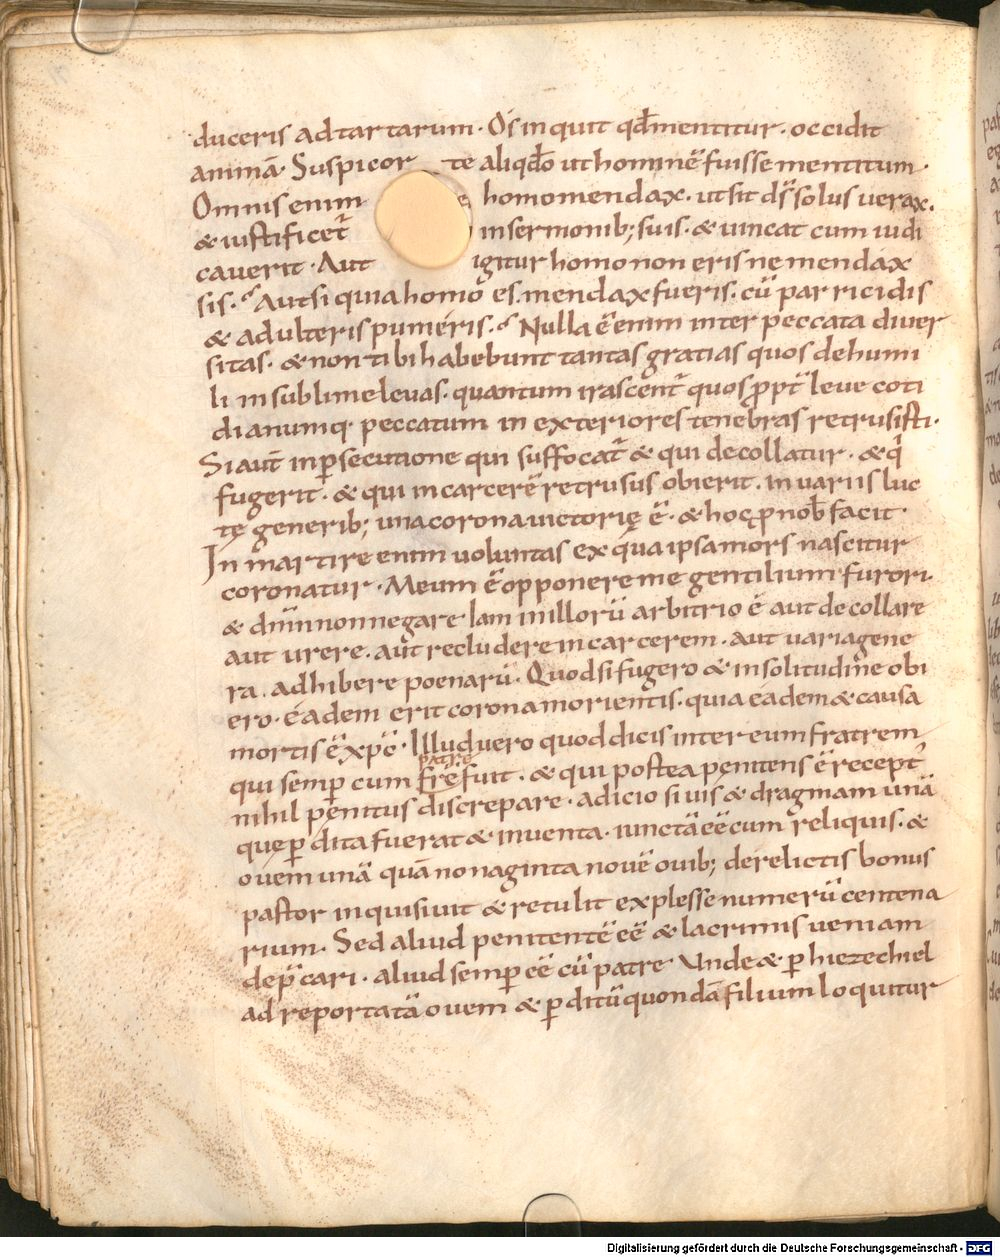 duceris ad tartarum. Os inquit qđ mentitur. occidit
animā. Suspicor te aliqđo ut hominē fuisse mentitum.
Omnis enim homo mendax. ut sit ds̄ solus uerax.
& iustificet̄ in sermonib; suis. & uincat cum iudi
cauerit. Aut igitur homo non eris ne mendax
sis. Aut si quia homo es. mendax fueris. cū parricidis
& adulteris pumeris. Nulla ē enim inter peccata diuer
sitas. & non tibi habebunt tantas gratias quos de humi
li in sublime leuas. quantum irascent̄ quos ꝓpt̄ leue coti
dianumq; peccatum in exteriores tenebras retrusisti.
Si aut̄ in ꝑsecutione qui suffocat̄ & qui decollatur. & q̄
fugerit. & qui in carcerē retrusus obierit. in uariis luc
tę generib; una corona uictorię ē. & hoc ꝓ nob̄ facit.
In martire enim uoluntas ex qua ipsa mors nascitur
coronatur. Meum ē opponere me gentilium furori.
& dn̄m non negare. Iam in illorū arbitrio ē aut decollare
aut urere. aut recludere in carcerem. aut uaria gene
ra. adhibere poenarū. Quod si fugero & in solitudine obi
ero. eadem erit corona morientis. quia eadem & causa
mortis ē xp̄c. Illud uero quod dicis inter eum fratrem
patrē
qui semꝑ cum fr̄e fuit. & qui postea penitens ē recept̄
nihil penitus discrepare. adicio si uis & dragmam unā
que ꝑdita fuerat & inuenta. iunctā eē cum reliquis. &
ouem unā quā nonaginta nouē ouib; derelictis bonus
pastor inquisiuit & retulit explesse numerū centena
rium. Sed aliud penitentē eē & lacrimis ueniam
dep̄cari. aliud semꝑ eē cū patre. Unde & ꝑ hiezechiel
ad reportatā ouem & ꝑditū quondā filium loquitur
Digitalisierung gefördert durch die Deutsche Forschungsgemeinschaft - DFG